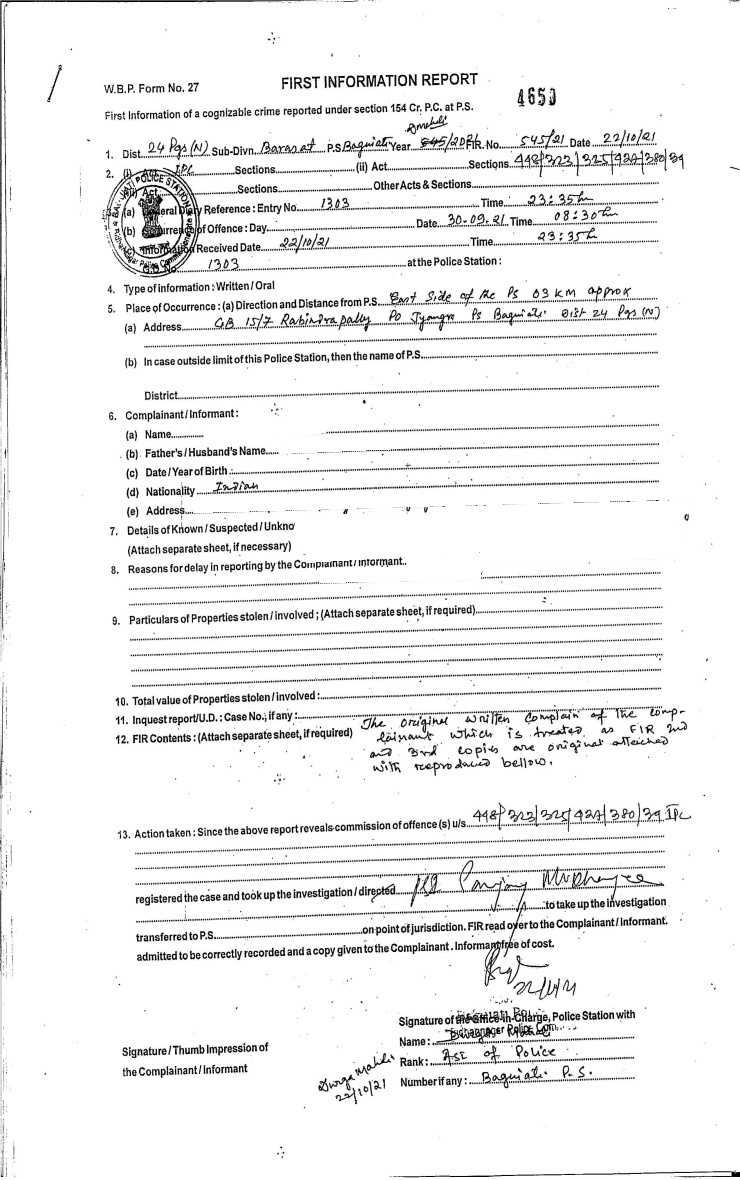 W.B.P. Form No. 27
FIRST INFORMATION REPORT
4650
First Information of a cognizable crime reported under section 154 Cr. P.C. at P.S.
1. Dist. 24 Pgs (N) Sub-Divn. Barasat P.S Baguiati Year FIR. No. 545/21 Date 22/10/21
2. (i) Act IPC Sections (ii) Act Sections 448/323/325/427/380/34
(iii) Act Sections Other Acts & Sections
3. (a) General Diary Reference : Entry No. 1303 Time 23:35 hr
(b) Occurrence of Offence : Day Date 30.09.21 Time 08:30 hr
(c) Information Received Date 22/10/21 Time 23:35 h
G.D. No. 1303 at the Police Station :
4. Type of information : Written / Oral
5. Place of Occurrence : (a) Direction and Distance from P.S. East Side of the Ps 03 KM approx
(a) Address GB 15/7 Rabindra pally Po Jyangra Ps Baguiati Dist 24 Pgs (N)
(b) In case outside limit of this Police Station, then the name of P.S.
District
6. Complainant / Informant :
(a) Name
(b) Father's / Husband's Name
(c) Date / Year of Birth :
(d) Nationality Indian
(e) Address
7. Details of Known / Suspected / Unkno
(Attach separate sheet, if necessary)
8. Reasons for delay in reporting by the Complainant / Informant
9. Particulars of Properties stolen / involved ; (Attach separate sheet, if required)
10. Total value of Properties stolen / involved :
11. Inquest report / U.D. : Case No., if any :
12. FIR Contents : (Attach separate sheet, if required) The original written complain of the comp-
lainant which is treated as FIR 2nd
and 3rd copies are original attached
with reproduced bellow.
13. Action taken : Since the above report reveals commission of offence (s) u/s 448/323/325/427/380/34 IPC
registered the case and took up the investigation / directed
to take up the investigation
transferred to P.S. on point of jurisdiction. FIR read over to the Complainant / Informant.
admitted to be correctly recorded and a copy given to the Complainant. Informant free of cost.
22/10/21
Signature of the Office-in-Charge, Police Station with
Name :
Signature / Thumb Impression of
the Complainant / Informant
Durga Mahali
22/10/21
Rank : ASI of Police
Number if any : Baguiati P.S.